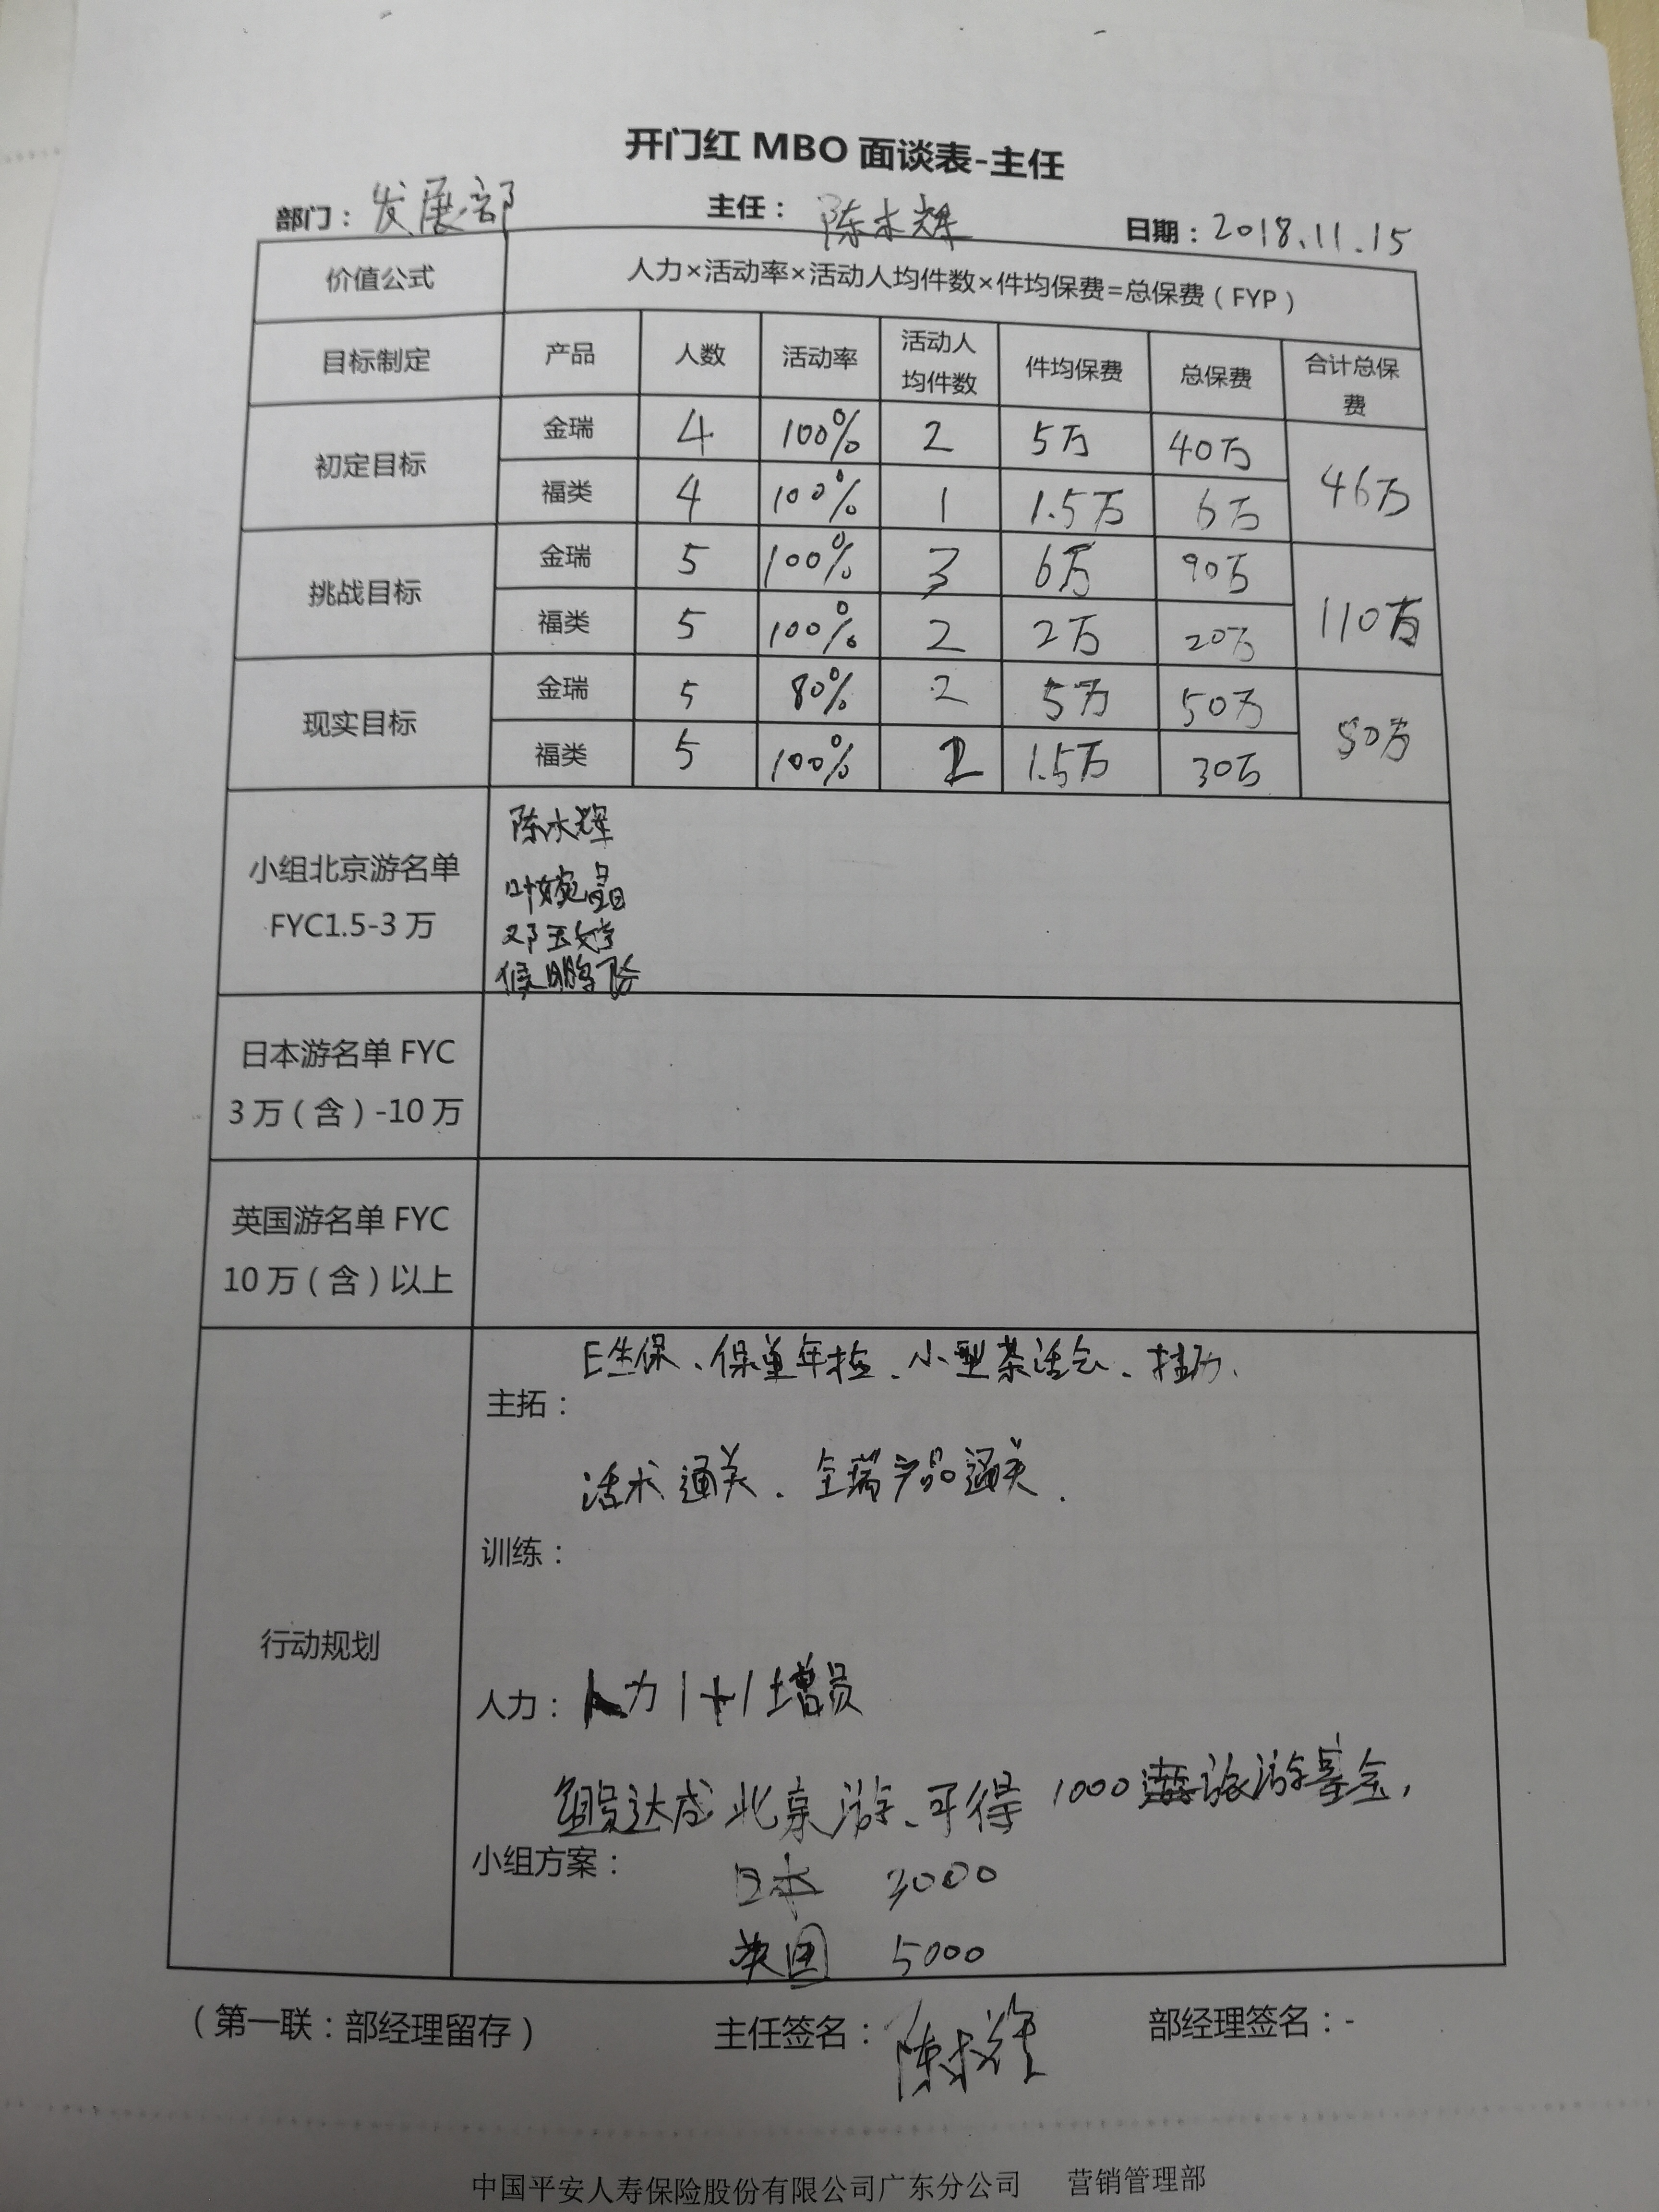 开门红 MBO 面谈表-主任
部门：发展部 主任：陈木辉 日期：2018.11.15
价值公式 人力×活动率×活动人均件数×件均保费=总保费（FYP）
目标制定 产品 人数 活动率 活动人均件数 件均保费 总保费 合计总保费
初定目标 金瑞 4 100% 2 5万 40万 46万
福类 4 100% 1 1.5万 6万
挑战目标 金瑞 5 100% 3 6万 90万 110万
福类 5 100% 2 2万 20万
现实目标 金瑞 5 80% 2 5万 50万 80万
福类 5 100% 1.5万 30万
小组北京游名单
FYC1.5-3 万
陈木辉
叶婉晶
邓玉婷
日本游名单 FYC
3 万（含）-10 万
英国游名单 FYC
10 万（含）以上
行动规划
E生保、保单年检、小型茶话会、
主拓：
话术通关、金瑞产品通关.
训练：
人力：人力1+1增员
组员达成北京游、可得1000旅游基金，
小组方案：
日本 3000
英国 5000
（第一联：部经理留存） 主任签名：陈木辉 部经理签名：-
中国平安人寿保险股份有限公司广东分公司 营销管理部